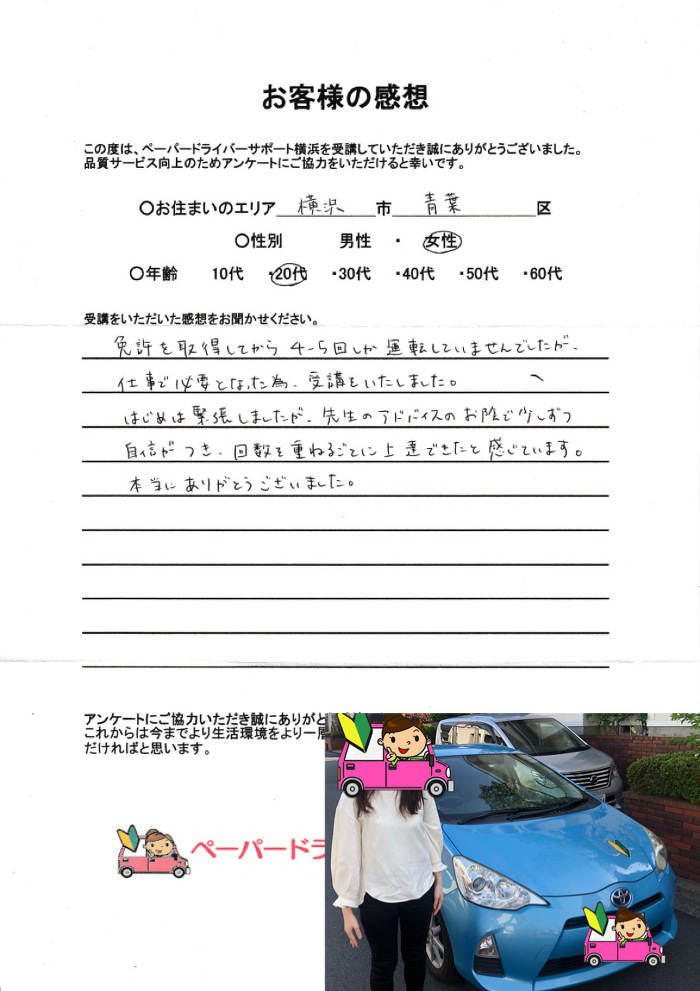 お客様の感想
この度は、ペーパードライバーサポート横浜を受講していただき誠にありがとうございました。
品質サービス向上のためアンケートにご協力をいただけると幸いです。
〇お住まいのエリア 横浜 市 青葉 区
〇性別 男性 ・ 女性
〇年齢 10代 ・20代 ・30代 ・40代 ・50代 ・60代
受講をいただいた感想をお聞かせください。
免許を取得してから 4-5回しか 運転していませんでしたが、
仕事で必要となった為、受講をいたしました。
はじめは緊張しましたが、先生のアドバイスのお陰で少しずつ
自信がつき、回数を重ねるごとに上達できたと感じています。
本当にありがとうございました。
アンケートにご協力いただき誠にありがと
これからは今までより生活環境をより一層
だければと思います。
ペーパードラ